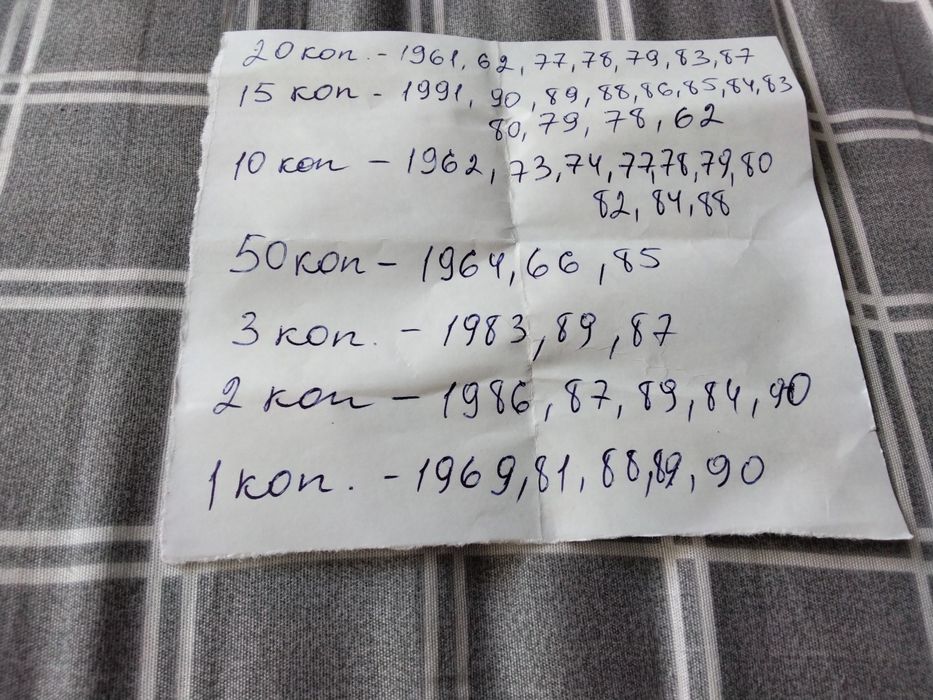 20 коп. - 1961, 62, 77, 78, 79, 83, 87
15 коп - 1991, 90, 89, 88, 86, 85, 84, 83
80, 79, 78, 62
10 коп - 1962, 73, 74, 77, 78, 79, 80
82, 84, 88
50 коп - 1964, 66, 85
3 коп. - 1983, 89, 87
2 коп - 1986, 87, 89, 84, 90
1 коп. - 1969, 81, 88, 89, 90